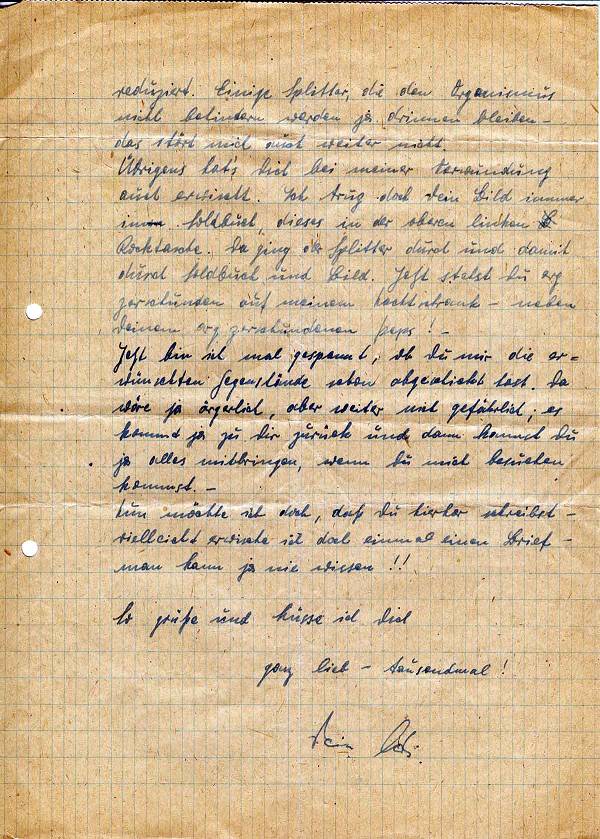 reduziert. Einige Splitter, die den Organismus
nicht behindern werden ja drinnen bleiben –
das stört mich auch weiter nicht.
Übrigens hat's Dich bei meiner Verwundung
auch erwischt. Ich trug doch Dein Bild immer
im Soldbuch, dieses in der oberen linken
Rocktasche. Da ging der Splitter durch und damit
durch Soldbuch und Bild. Jetzt stehst Du arg
zerschunden auf meinem Nachtschrank – neben
Deinem arg zerschundenen Peps! –
Jetzt bin ich mal gespannt, ob Du mir die er=
wünschten Gegenstände schon abgeschickt hast. Da
wäre ja ärgerlich, aber weiter nit gefährlich, es
kommt ja zu Dir zurück und dann kannst Du
ja alles mitbringen, wenn Du mich besuchen
kommst. –
Nun möchte ich doch, daß Du hierher schreibst –
vielleicht erwische ich doch einmal einen Brief –
man kann ja nie wissen!!
So grüße und küsse ich Dich
ganz lieb – tausendmal!
Dein